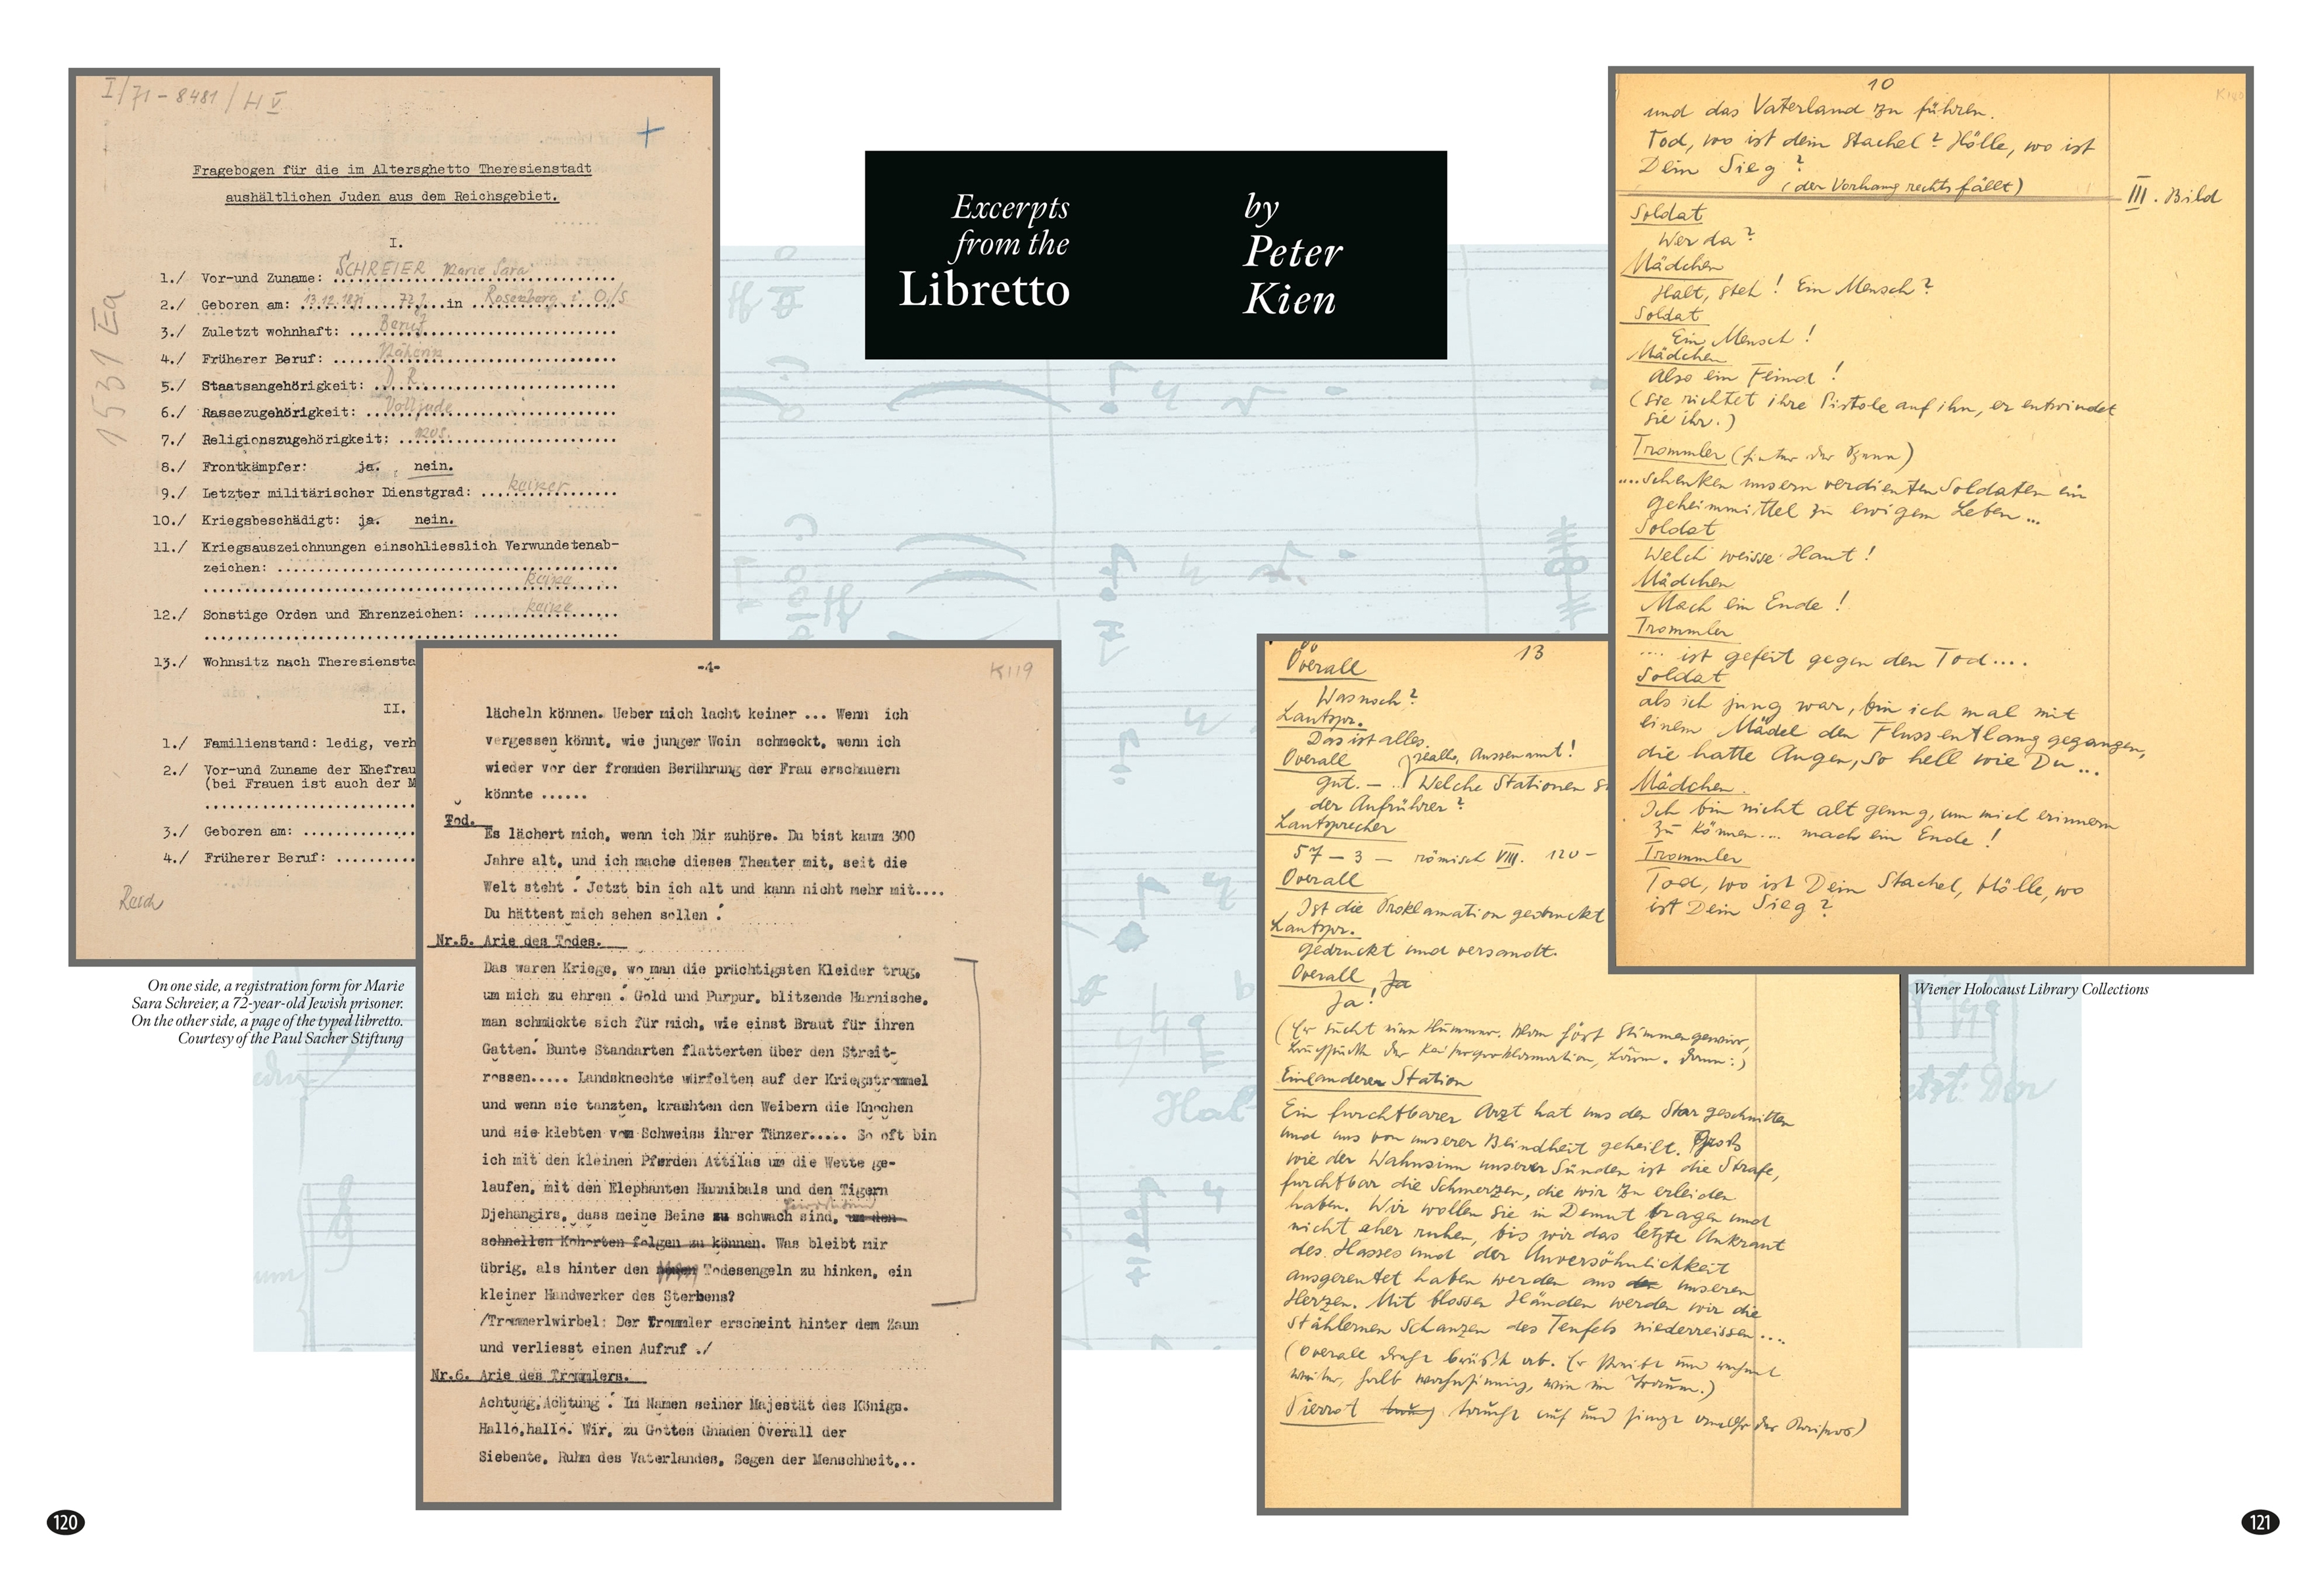 I/71 - 8481 / H V
Fragebogen für die im Altersghetto Theresienstadt
aushältlichen Juden aus dem Reichsgebiet.
I.
1531 Ea
1./ Vor-und Zuname: SCHREIER Marie Sara
2./ Geboren am: 13.12.1871 72 J. in Rosenberg i. O/S
3./ Zuletzt wohnhaft: Beruf
4./ Früherer Beruf: Näherin
5./ Staatsangehörigkeit: D. R.
6./ Rassezugehörigkeit: Volljude
7./ Religionszugehörigkeit: mos.
8./ Frontkämpfer: ja. nein.
9./ Letzter militärischer Dienstgrad: keiner
10./ Kriegsbeschädigt: ja. nein.
11./ Kriegsauszeichnungen einschliesslich Verwundetenab-
zeichen:
keine
12./ Sonstige Orden und Ehrenzeichen: keine
13./ Wohnsitz nach Theresiensta
II.
1./ Familienstand: ledig, verh
2./ Vor-und Zuname der Ehefrau
(bei Frauen ist auch der M
3./ Geboren am:
4./ Früherer Beruf:
On one side, a registration form for Marie
Sara Schreier, a 72-year-old Jewish prisoner.
On the other side, a page of the typed libretto.
Courtesy of the Paul Sacher Stiftung
-4- K119
lächeln können. Ueber mich lacht keiner ... Wenn ich
vergessen könnt, wie junger Wein schmeckt, wenn ich
wieder vor der fremden Berührung der Frau erschauern
könnte ......
Tod.
Es lächert mich, wenn ich Dir zuhöre. Du bist kaum 300
Jahre alt, und ich mache dieses Theater mit, seit die
Welt steht ! Jetzt bin ich alt und kann nicht mehr mit....
Du hättest mich sehen sollen !
Nr.5. Arie des Todes.
Das waren Kriege, wo man die prächtigsten Kleider trug,
um mich zu ehren ! Gold und Purpur, blitzende Harnische,
man schmückte sich für mich, wie einst Braut für ihren
Gatten! Bunte Standarten flatterten über den Streit-
rossen..... Landsknechte würfelten auf der Kriegstrommel
und wenn sie tanzten, krachten den Weibern die Knochen
und sie klebten vom Schweiss ihrer Tänzer..... So oft bin
ich mit den kleinen Pferden Attilas um die Wette ge-
laufen, mit den Elephanten Hannibals und den Tigern
Djehangirs, dass meine Beine zu schwach sind, um den
schnellen Kohorten folgen zu können. Was bleibt mir
übrig, als hinter den Todesengeln zu hinken, ein
kleiner Handwerker des Sterbens?
/Trommerlwirbel: Der Trommler erscheint hinter dem Zaun
und verliesst einen Aufruf ./
Nr.6. Arie des Trommlers.
Achtung,Achtung ! Im Namen seiner Majestät des Königs.
Hallo,hallo. Wir, zu Gottes Gnaden Overall der
Siebente, Ruhm des Vaterlandes, Segen der Menschheit,..
120
Excerpts
from the
Libretto
by
Peter
Kien
13
Overall
Was noch?
Lautspr.
Das ist alles.
Overall
gut. — Welche Stationen
der Aufrührer?
Lautsprecher
57 — 3 — römisch VIII. 120 —
Overall
Ist die Proklamation gedruckt
Lautspr.
gedruckt und versandt.
Overall Ja
Ja!
Ein anderer Station
Ein furchtbarer Arzt hat uns den Star geschnitten
und uns von unserer Blindheit geheilt. Gross
wie der Wahnsinn unserer Sünden ist die Strafe,
furchtbar die Schmerzen, die wir zu erleiden
haben. Wir wollen sie in Demut tragen und
nicht eher ruhen, bis wir das letzte Unkraut
des Hasses und der Unversöhnlichkeit
ausgereutet haben werden aus unseren
Herzen. Mit blossen Händen werden wir die
stählernen Schanzen des Teufels niederreissen....
Pierrot
10
und das Vaterland zu führen.
Tod, wo ist dein Stachel? Hölle, wo ist
Dein Sieg?
(der Vorhang rechts fällt)
III. Bild
Soldat
Wer da?
Mädchen
Halt, steh! Ein Mensch?
Soldat
Ein Mensch!
Mädchen
Also ein Feind!
(Sie richtet ihre Pistole auf ihn, er entwindet
sie ihr.)
Trommler (hinter der Szene)
....schenken unsern verdienten Soldaten ein
geheimmittel zu ewigem Leben...
Soldat
Welch weisse Haut!
Mädchen
Mach ein Ende!
Trommler
.... ist gefeit gegen den Tod....
Soldat
als ich jung war, bin ich mal mit
einem Mädel den Fluss entlang gegangen,
die hatte Augen, so hell wie Du...
Mädchen.
Ich bin nicht alt genug, um mich erinnern
zu können... mach ein Ende!
Trommler
Tod, wo ist Dein Stachel, Hölle, wo
ist Dein Sieg?
Wiener Holocaust Library Collections
121